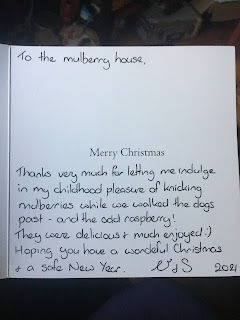 To the mulberry house,
Merry Christmas
Thanks very much for letting me indulge
in my childhood pleasure of knicking
mulberries while we walked the dogs
past - and the odd raspberry!
They were delicious & much enjoyed :)
Hoping you have a wondeful Christmas
& a safe New Year. V & S 2021